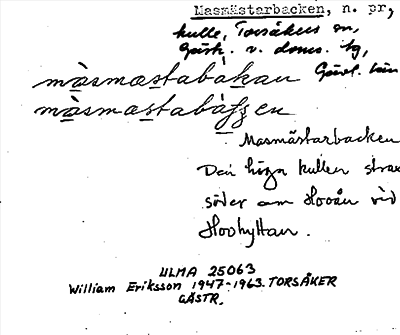 Masmästarbacken, n. pr,
kulle, Torsåkers sn,
Gästr. v. doms. tg,
màsmastabàkan Gävl. län
màsmastabàʃʃen
Masmästarbacken
Den höga kullen strax
söder om Hooån vid
Hoohyttan.
ULMA 25063
William Eriksson 1947-1963. TORSÅKER
GÄSTR.